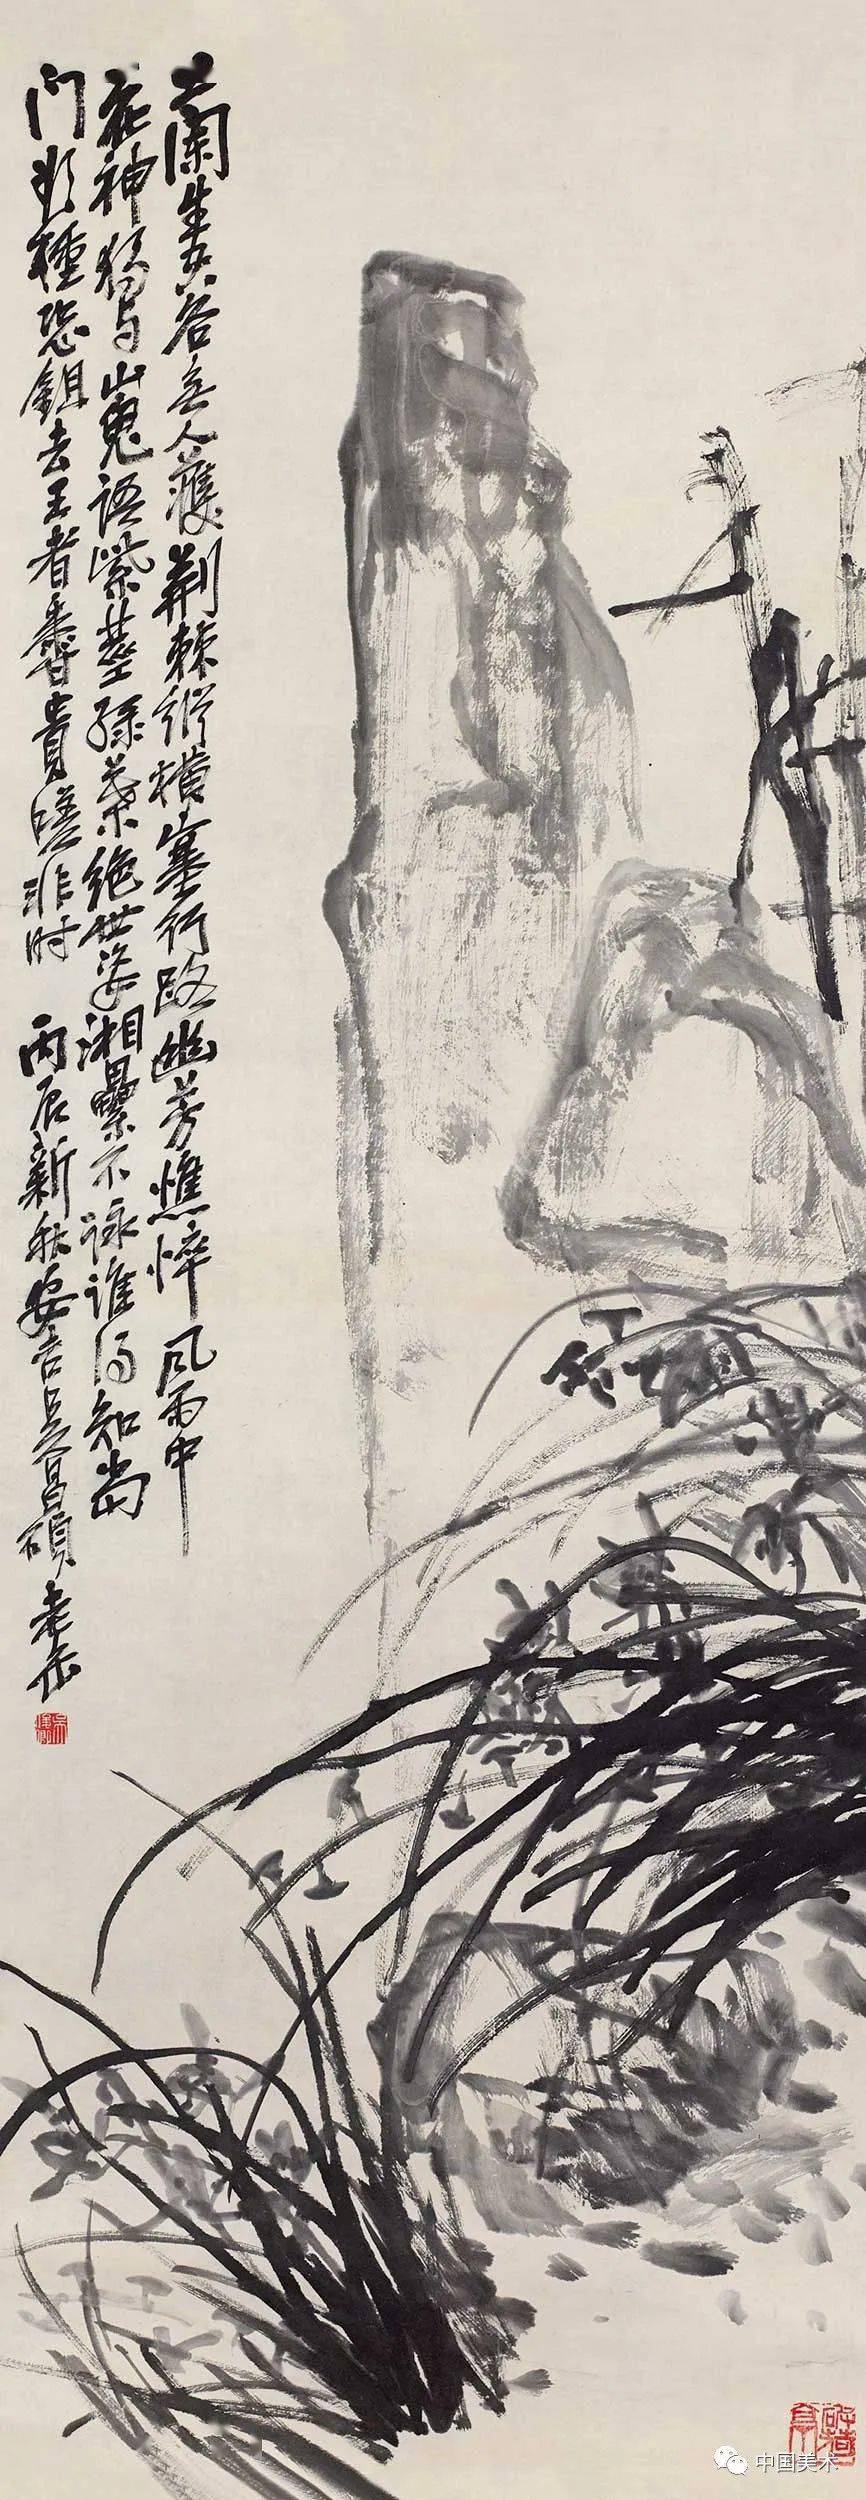 蘭生空谷无人護荆棘縱横塞行路幽芳憔悴風雨中
花神獨与山鬼語紫莖綠葉絕世姿湘纍不詠誰得知當
門欲種恐鉏去王者香貴嗟非时 丙辰新秋安吉吳昌碩老缶
中国美术